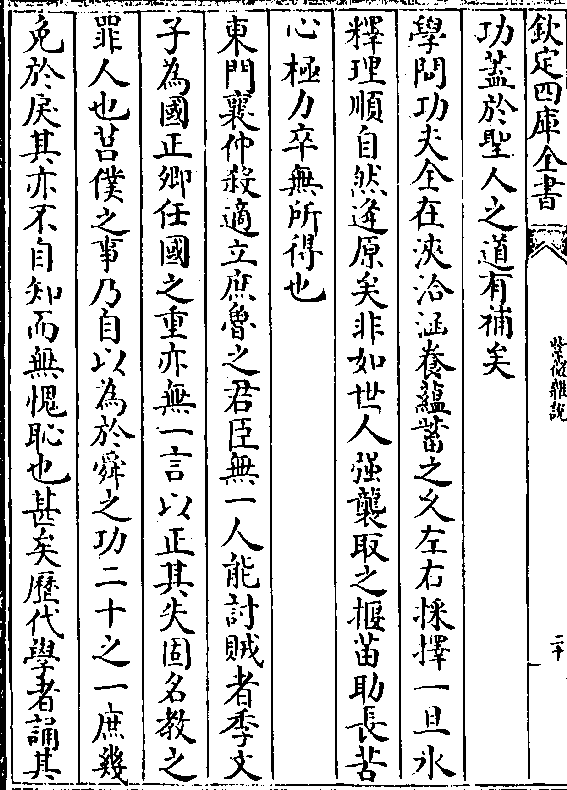 欽定四庫全書
紫微雜說
二十
功蓋於聖人之道有補矣
學問功夫全在浹洽涵養蘊蓄之久左右採擇一旦氷
釋理順自然逢原矣非如世人强襲取之揠苗助長苦
心極力卒無所得也
東門襄仲殺適立庶魯之君臣無一人能討賊者季文
子為國正卿任國之重亦無一言以正其失固名教之
罪人也莒僕之事乃自以為於舜之功二十之一庶幾
免於戾其亦不自知而無愧恥也甚矣歴代學者誦其